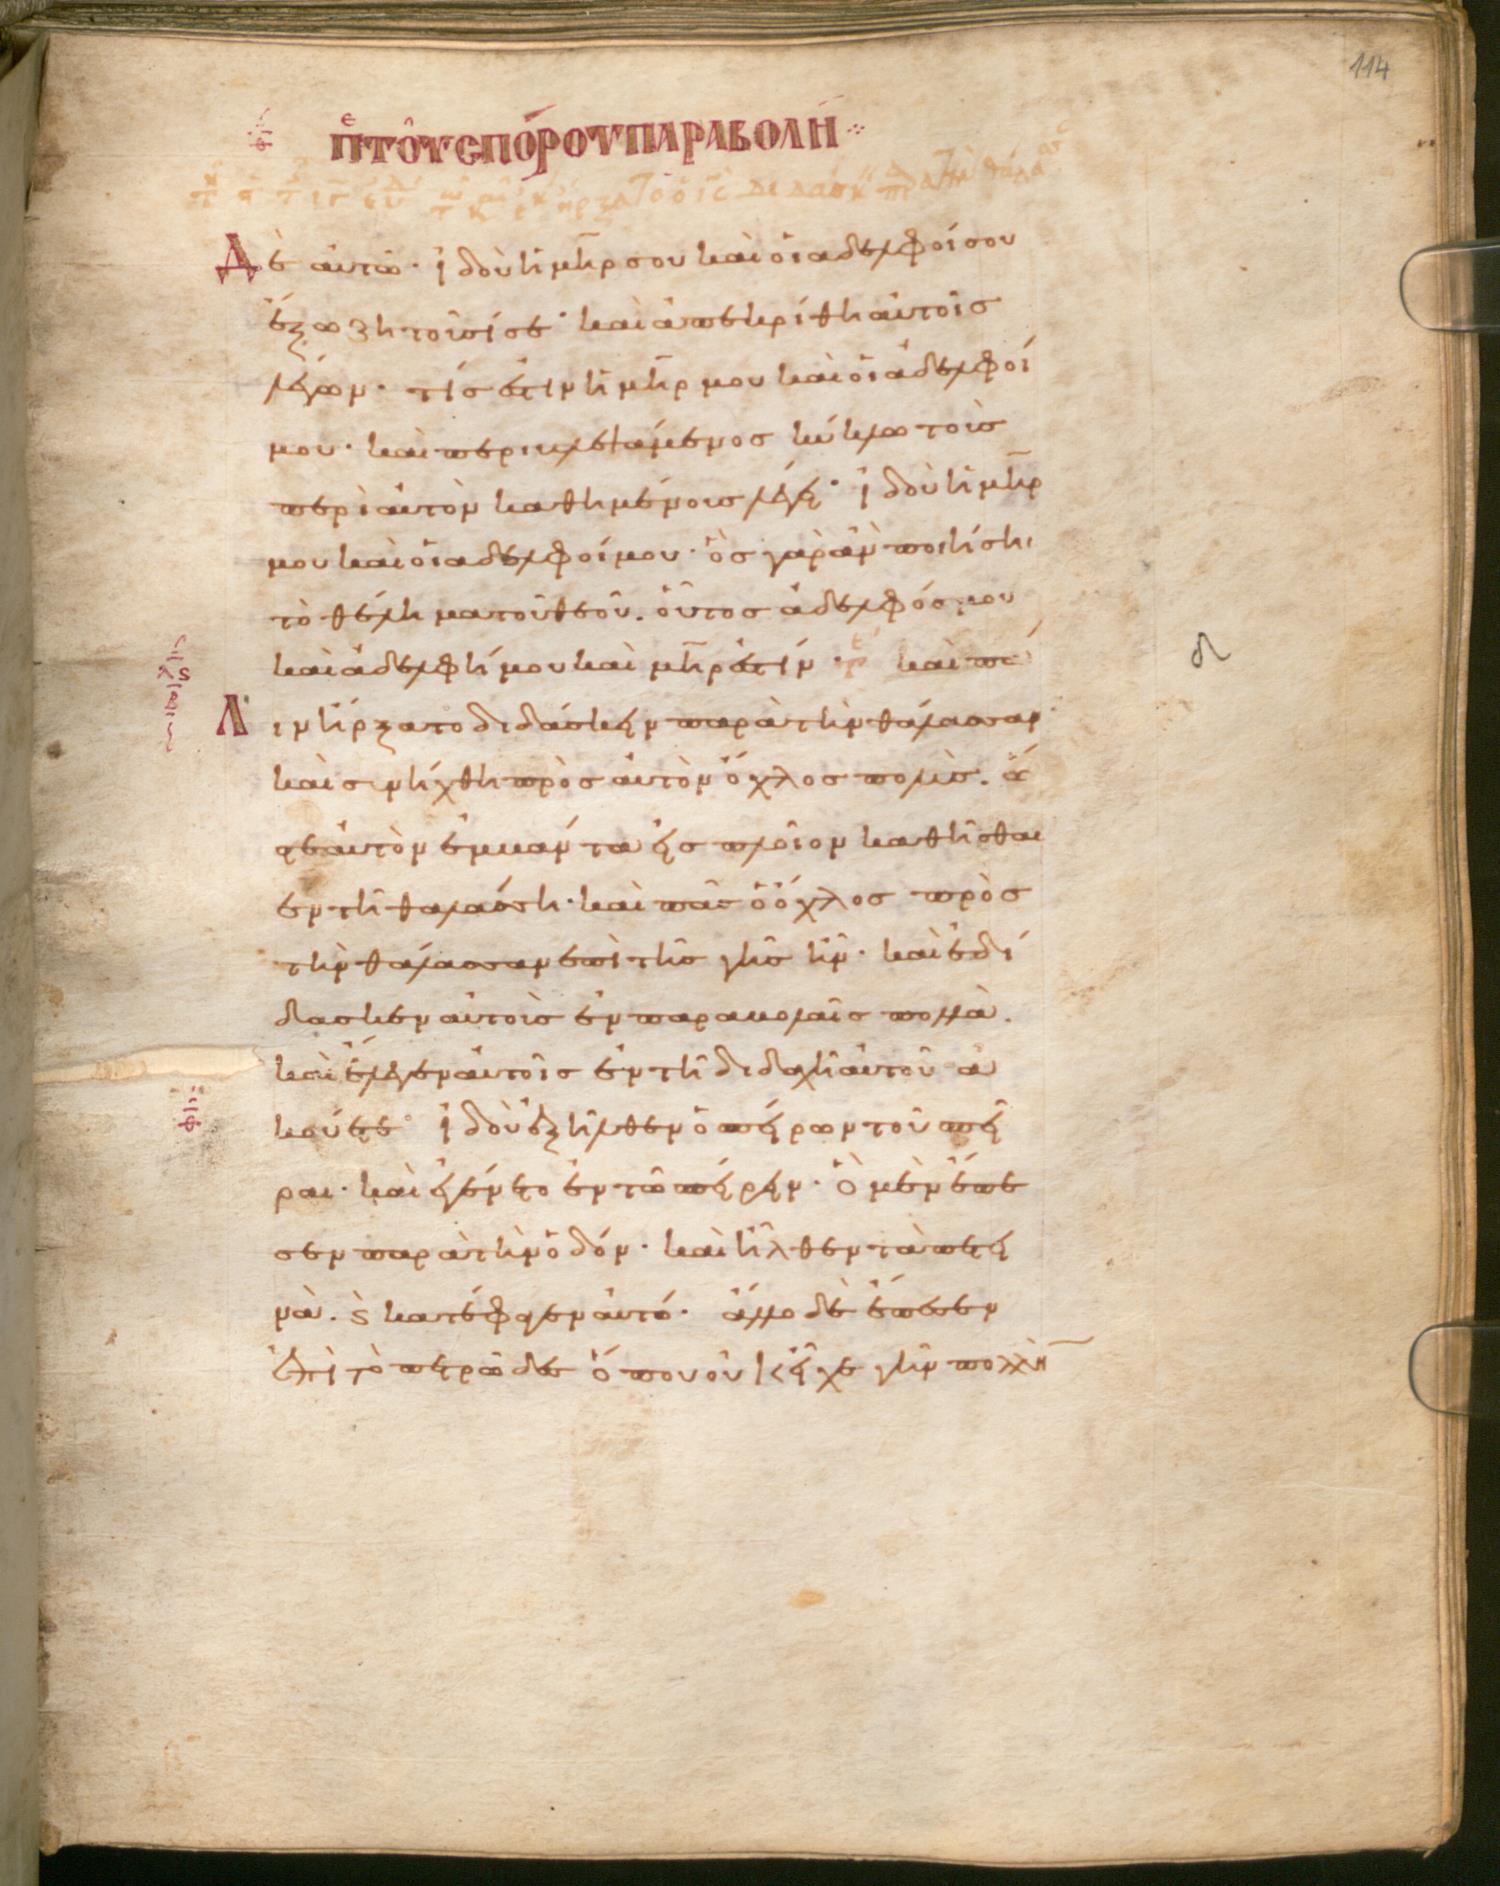 114
περὶ τοῦ σπόρου παραβολή
δὲ αὐτῶ· ἰδοὺ ἡ μῆρ σου καὶ οἱ ἀδελφοί σου
ἔξω ζητοῦσί σε· καὶ ἀπεκρίθη αὐτοῖς
λέγων· τίς ἐστιν ἡ μῆρ μου καὶ οἱ ἀδελφοί
μου· καὶ περιβλεψάμενος κύκλω τοὺς
περὶ αὐτὸν καθημένους λέγει· ἰδοὺ ἡ μῆρ
μου καὶ οἱ ἀδελφοί μου· ὃς γὰρ ἂν ποιήση
τὸ θέλημα τοῦ θεοῦ. οὗτος ἀδελφός μου
καὶ ἀδελφή μου καὶ μῆρ ἐστίν· καὶ πά
λιν ἤρξατο διδάσκειν παρὰ τὴν θάλασσαν·
καὶ συνήχθη πρὸς αὐτὸν ὄχλος πολὺς. ὥ
στε αὐτὸν ἐμβάντα εἰς πλοῖον καθῆσθαι
ἐν τῆ θαλάσση· καὶ πᾶς ὁ ὄχλος πρὸς
τὴν θάλασσαν ἐπὶ τῆς γῆς ἦν· καὶ ἐδί
δασκεν αὐτοὺς ἐν παραβολαῖς πολλὰ.
καὶ ἔλεγεν αὐτοῖς ἐν τῆ διδαχῆ αὐτοῦ ἀ
κούετε· ἰδοὺ ἐξῆλθεν ὁ σπείρων τοῦ σπεῖ
ραι· καὶ ἐγένετο ἐν τῶ σπείρειν· ὃ μὲν ἔπε
σεν παρὰ τὴν ὁδόν· καὶ ἦλθεν τὰ πετει
νὰ. ϛ κατέφαγεν αὐτό· ἄλλο δὲ ἔπεσεν
ἐπὶ τὸ πετρῶδες ὅπου οὐκ εἶχε γῆν πολλὴν